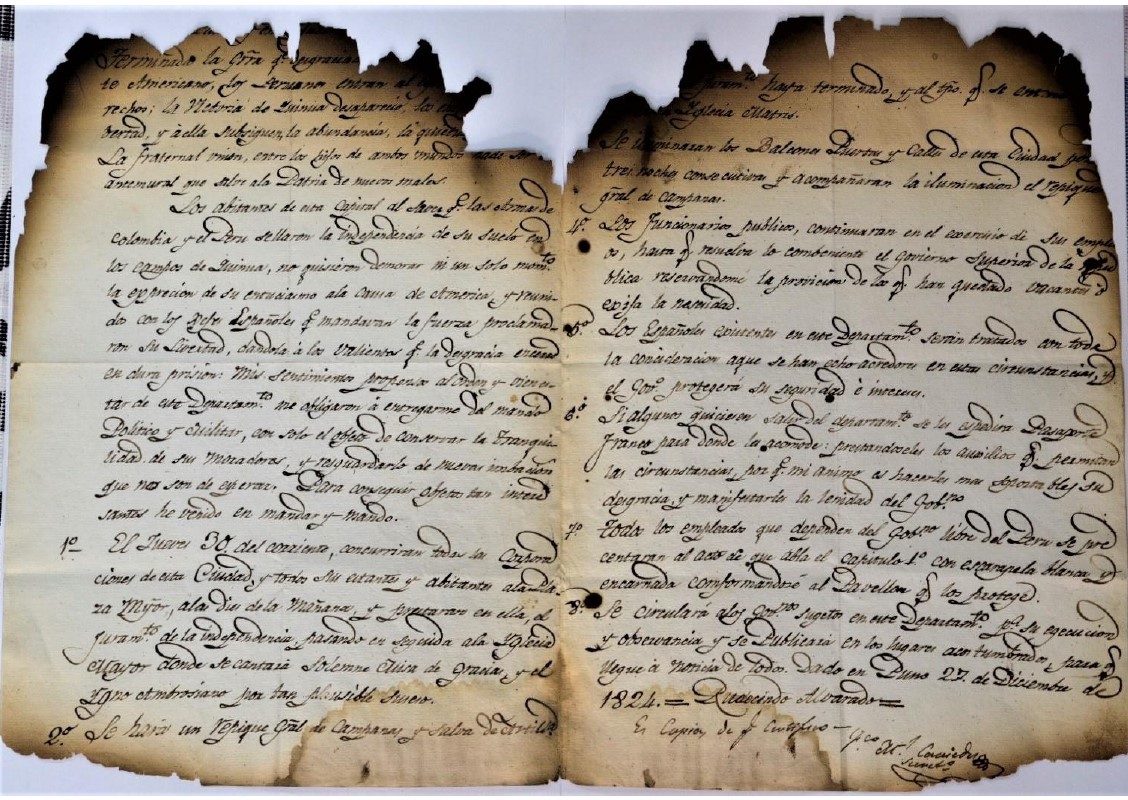 Terminada la Grra q.e desgracia
te Americano, los Peruanos entran al
rechos; la Victoria de Quinua desaparecio, los
bertad, y á ella subsiguen, la abundancia, la quietud
La fraternal union, entre los hijos de ambos mundos
antemural que salve ala Patria de nuevos males.
Los abitantes de esta Capital al saver q.e las Armas de
colombia y el Peru sellaron la independencia de su suelo en
los campos de Quinua, no quisieron demorar ni un solo mom.to
la exprecion de su entuciasmo ala causa de America, y reuni-
do con los Gefes Españoles q.e mandavan la fuerza proclama-
ron su Livertad, dandola á los valientes q.e la desgracia
en dura pricion: Mis sentimientos propensos al orden y vienes-
tar de este Departam.to me obligaron á entregarme del mando
Politico y Militar, con solo el objeto de conservar la Tranqui-
lidad de sus Moradores, y resguardarlo de nuevas
que nos son de esperar. Para conseguir objeto tan intere
santes he venido en mandar y mando.
1.o El Jueves 30 del corriente, concurriran todas las Corpora
ciones de esta Ciudad, y todos sus estantes y abitantes ala Pla
za Mayor, alas dies de la Mañana, y prestaran en ella, el
Juram.to de la independencia, pasando en seguida ala Yglecia
Mayor donde se cantará Solemne Misa de Gracias, y el
Ygno Ambrosiano por tan plausible suceso.
2.o Se hará un repique Gral de Campanas y Salva de Artill.a
Juram.to haya terminado, y al tpo. q.e se
Yglecia Matris.
Se iluminaran los Balcones Puertas y Calles de esta Ciudad por
tres noches consecutivas y acompañaran la iluminacion el repique
gral de campanas.
4.o Los Funcionarios publicos, continuaran en el exercicio de sus emple
os, hasta q.e resuelva lo combeniente el Govierno Superior de la
blica reservandome la provicion de los q.e han quedado vacantes ó
exija la necesidad.
5.o Los Españoles existentes en este Departam.to serán tratados con toda
la concideracion aque se han echo acredores en estas circunstancias, y
el Gov.o protegerá su seguridad é intereses.
6.o Si algunos quicieren salir del departam.to se les espedira Pasaporte
franco para donde les acomode: prestandoceles los auxilios q.e permitan
las circunstancias, por q.e mi animo es hacerles mas soportables su
desgracia, y manifestarles la lenidad del Gov.no
7.o Todos los empleados que dependen del Gov.no libre del Peru se pre
centaran al acto de que abla el Capitulo 1.o con escarapela blanca y
encarnada conformandose al Pavellon q.e los protege.
8.o Se circulará alos Gov.nos sugetos en este Departam.to p.a su egecucion
y observancia y se Publicará en los lugares acostumbrados, para q.e
llegue á noticia de todos. Dado en Puno 27. de Diciembre de
1824. = Rudecindo Alvarado =
Es Copia, de q.e Certifico -
Secret.o